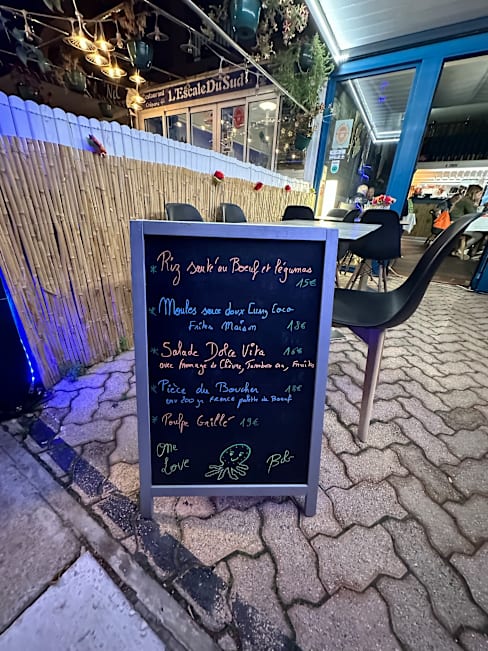 Restaurant
L'EscaleDuSud
Riz sauté au Boeuf et légumes
15€
Moules sauce doux Curry Coco
Frites Maison 18€
Salade Dolce Vita 16€
avec fromage de Chèvre, Jambon cru, Fruits
Pièce du Boucher 18€
env 200 gr France palette de Boeuf
Poulpe Grillé 19€
One
Love